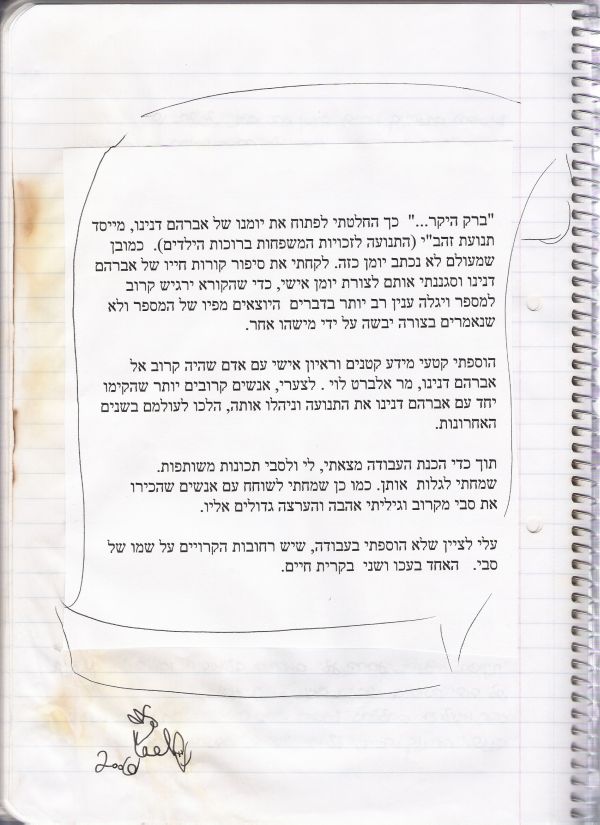 "ברק היקר..."  כך החלטתי לפתוח את יומנו של אברהם דנינו, מייסד
תנועת זהב"י (התנועה לזכויות המשפחות ברוכות הילדים).  כמובן
שמעולם לא נכתב יומן כזה. לקחתי את סיפור קורות חייו של אברהם
דנינו וסגננתי אותם לצורת יומן אישי, כדי שהקורא ירגיש קרוב
למספר ויגלה ענין רב יותר בדברים  היוצאים מפיו של המספר ולא
שנאמרים בצורה יבשה על ידי מישהו אחר.
הוספתי קטעי מידע קטנים וראיון אישי עם אדם שהיה קרוב אל
אברהם דנינו, מר אלברט לוי . לצערי, אנשים קרובים יותר שהקימו
יחד עם אברהם דנינו את התנועה וניהלו אותה, הלכו לעולמם בשנים
האחרונות.
תוך כדי הכנת העבודה מצאתי, לי ולסבי תכונות משותפות.
שמחתי לגלות  אותן. כמו כן שמחתי לשוחח עם אנשים שהכירו
את סבי מקרוב וגיליתי אהבה והערצה גדולים אליו.
עלי לציין שלא הוספתי בעבודה, שיש רחובות הקרויים על שמו של
סבי.   האחד בעכו ושני  בקרית חיים.
2006